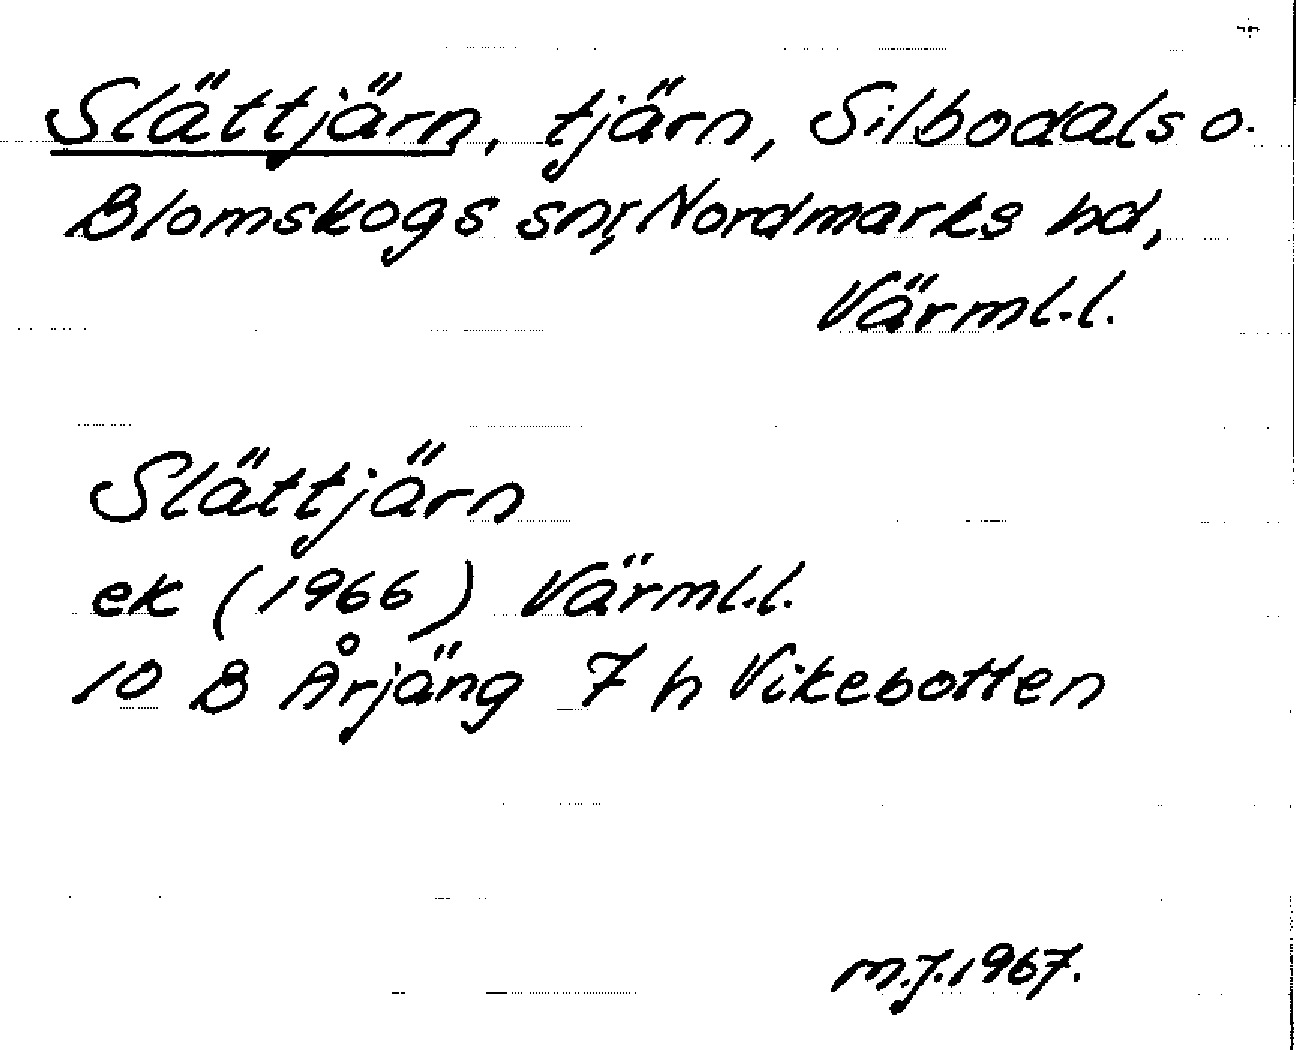 Slättjärn, tjärn, Silbodals o.
Blomskogs snr, Nordmarks hd,
Värml.l.
Slättjärn
ek (1966) Värml.l.
10 B Årjäng 7 h Vikebotten
M.J.1967.